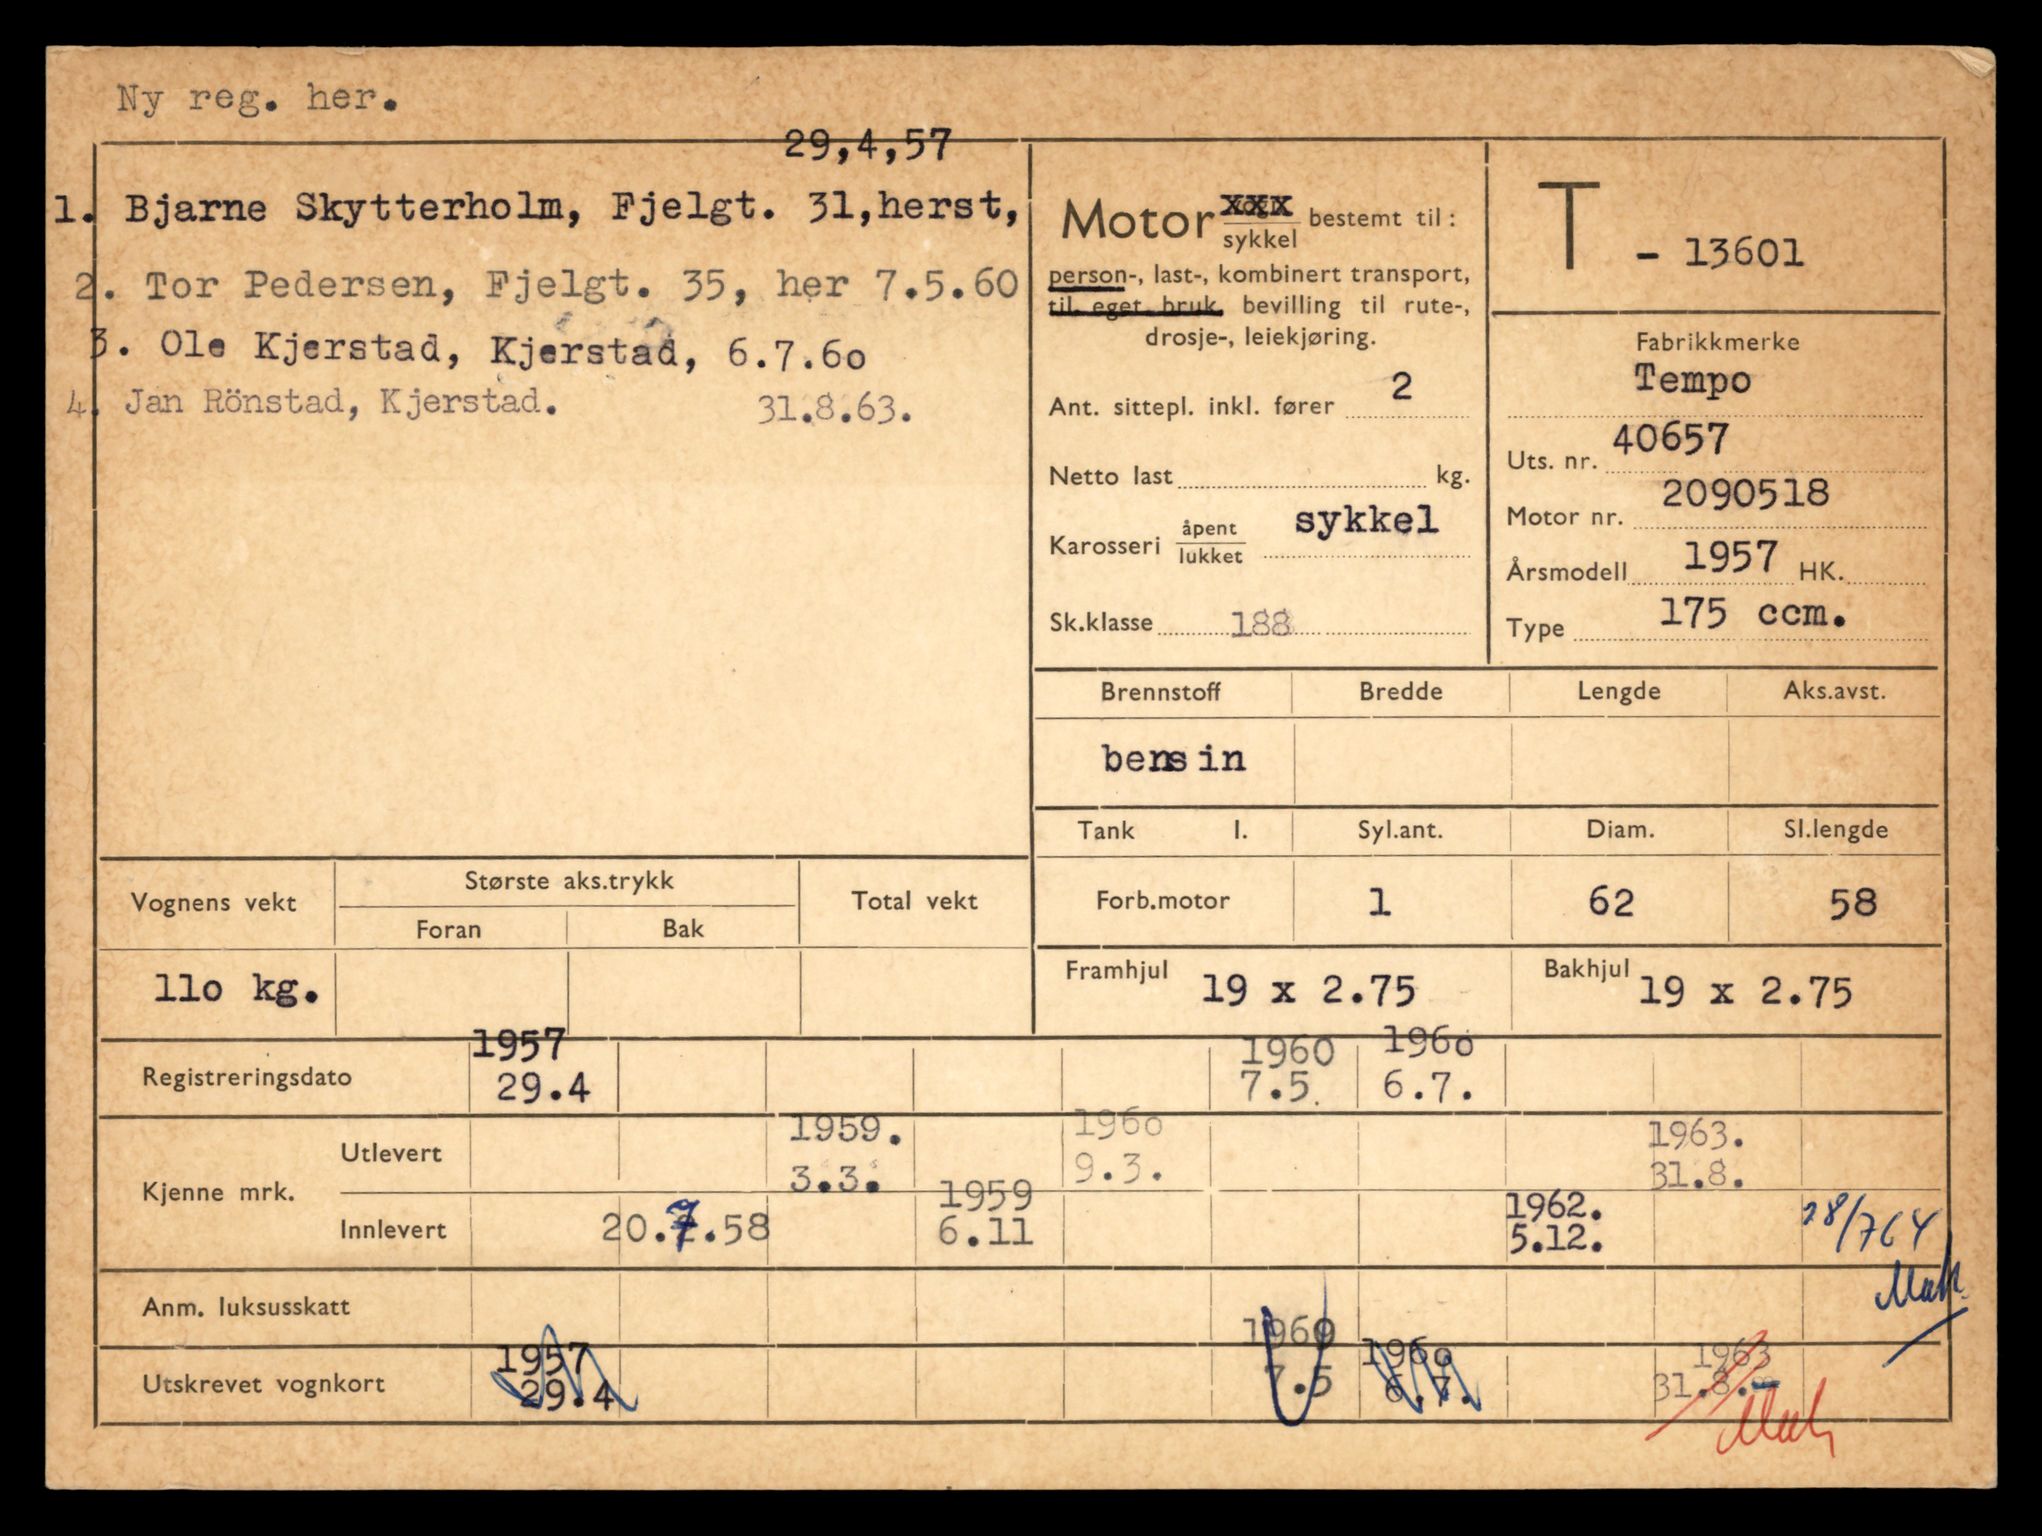 Ny reg. her.
29,4,57
1. Bjarne Skytterholm, Fjelgt. 31,herst,
2. Tor Pedersen, Fjelgt. 35, her 7.5.60
3. Ole Kjerstad, Kjerstad, 6.7.6o
4. Jan Rönstad, Kjerstad. 31.8.63.
Motor xxx sykkel bestemt til:
person-, last-, kombinert transport,
til eget bruk, bevilling til rute-,
drosje-, leiekjøring.
Ant. sittepl. inkl. fører 2
Netto last kg.
Karosseri åpent lukket sykkel
Sk.klasse 188
T - 13601
Fabrikkmerke
Tempo
Uts. nr. 40657
Motor nr. 2090518
Årsmodell 1957 HK.
Type 175 ccm.
Brennstoff Bredde Lengde Aks.avst.
bensin
Tank l. Syl.ant. Diam. Sl.lengde
Forb.motor 1 62 58
Framhjul 19 x 2.75 Bakhjul 19 x 2.75
Vognens vekt Største aks.trykk Total vekt
Foran Bak
11o kg.
1957 1960 196o
Registreringsdato 29.4 7.5. 6.7.
1959. 196o 1963.
Utlevert 3.3. 9.3. 31.8.
Kjenne mrk.
1959 1962.
Innlevert 20.7.58 6.11 5.12. 28/7 64
Anm. luksusskatt
1957 1960 196o 1963
Utskrevet vognkort 29.4 7.5 6.7. 31.8.